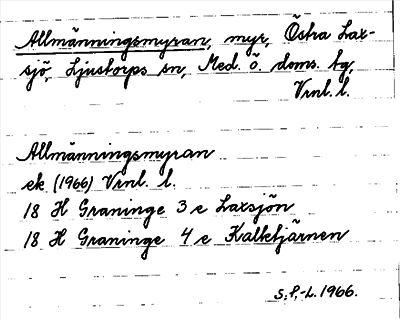 Allmänningsmyran, myr, Östra Lax-
sjö, Ljustorps sn, Med. ö. doms. tg,
Vrnl. l.
Allmänningsmyran
ek. (1966) Vrnl. l.
18 H Graninge 3 e Laxsjön
18 H Graninge 4 e Kalktjärnen
S.f.-L. 1966.